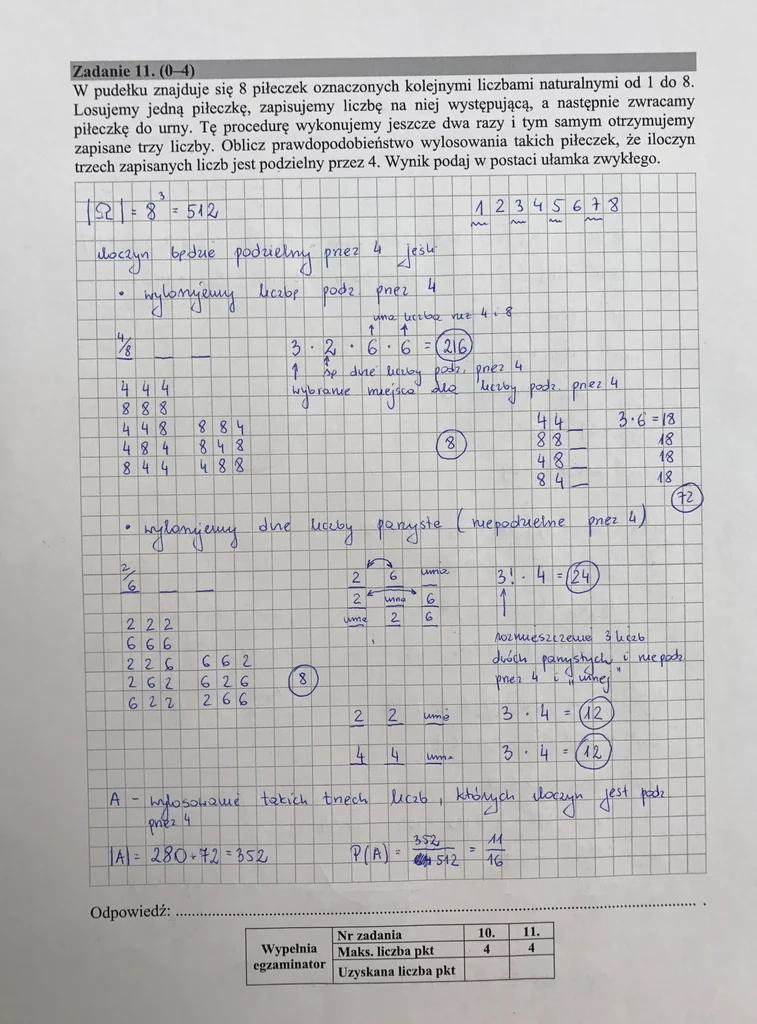 Zadanie 11. (0–4)
W pudełku znajduje się 8 piłeczek oznaczonych kolejnymi liczbami naturalnymi od 1 do 8.
Losujemy jedną piłeczkę, zapisujemy liczbę na niej występującą, a następnie zwracamy
piłeczkę do urny. Tę procedurę wykonujemy jeszcze dwa razy i tym samym otrzymujemy
zapisane trzy liczby. Oblicz prawdopodobieństwo wylosowania takich piłeczek, że iloczyn
trzech zapisanych liczb jest podzielny przez 4. Wynik podaj w postaci ułamka zwykłego.
|Ω| = 8³ = 512
1 2 3 4 5 6 7 8
iloczyn będzie podzielny przez 4 jeśli
• wylosujemy liczbę podz. przez 4
inna liczba niż 4 i 8
4/8 __ __
3 · 2 · 6 · 6 = 216
są dwie liczby podz. przez 4
wybranie miejsca dla liczby podz. przez 4
4 4 4
8 8 8
4 4 8 8 8 4
4 8 4 8 4 8
8 4 4 4 8 8
8
4 4 __ 3·6 = 18
8 8 __ 18
4 8 __ 18
8 4 __ 18
72
• wylosujemy dwie liczby parzyste (niepodzielne przez 4)
2/6 __ __
2 6 inna 3! · 4 = 24
2 inna 6
inna 2 6
rozmieszczenie 3 liczb
dwóch parzystych i niepodz
przez 4 i "innej"
2 2 2
6 6 6
2 2 6 6 6 2
2 6 2 6 2 6
6 2 2 2 6 6
8
2 2 inne 3 · 4 = 12
4 4 inna 3 · 4 = 12
A - wylosowanie takich trzech liczb, których iloczyn jest podz
przez 4
|A| = 280 + 72 = 352
P(A) = 352/512 = 11/16
Odpowiedź: ....................
Wypełnia
egzaminator
Nr zadania 10. 11.
Maks. liczba pkt 4 4
Uzyskana liczba pkt